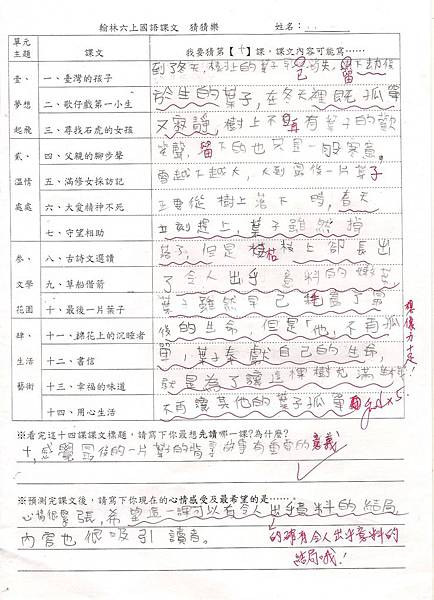 翰林六上國語課文 猜猜樂 姓名：
單元主題 課文 我要猜第【十】課，課文內容可能寫……
壹、 一、臺灣的孩子 到了冬天，樹上的葉子早已消失，留下劫後
夢想 二、歌仔戲第一小生 餘生的葉子，在冬天裡既孤單
起飛 三、尋找石虎的女孩 又寂靜，樹上不再有葉子的歡
貳、 四、父親的腳步聲 笑聲，留下的也只是一股寒意。
溫情 五、滿修女採訪記 雪越下越大，大到最後一片葉子
處處 六、大愛精神不死 正要從樹上落下時，春天
七、守望相助 立刻趕上，葉子雖然掉
參、 八、古詩文選讀 落了，但是枯枝上卻長出
文學 九、草船借箭 了令人出乎意料的嫩葉
花園 十、最後一片葉子 葉子雖然早已耗盡了最
肆、 十一、錦花上的沉睡者 後的生命，但是「他」不再孤
生活 十二、書信 單，葉子奉獻自己的生命，
藝術 十三、幸福的味道 就是為了讓這棵樹充滿
十四、用心生活 不再讓其他的葉子孤單
想像力十足！
good×5
※看完這十四課課文標題，請寫下你最想先讀哪一課？為什麼？
十，感覺最後的一片葉的背景故事有重要的意義
※預測完課文後，請寫下你現在的心情感受及最希望的是……
心情很緊張，希望這一課可以有令人出乎意料的結局
內容也很吸引讀者。
的確有令人出乎意料的
結局哦！